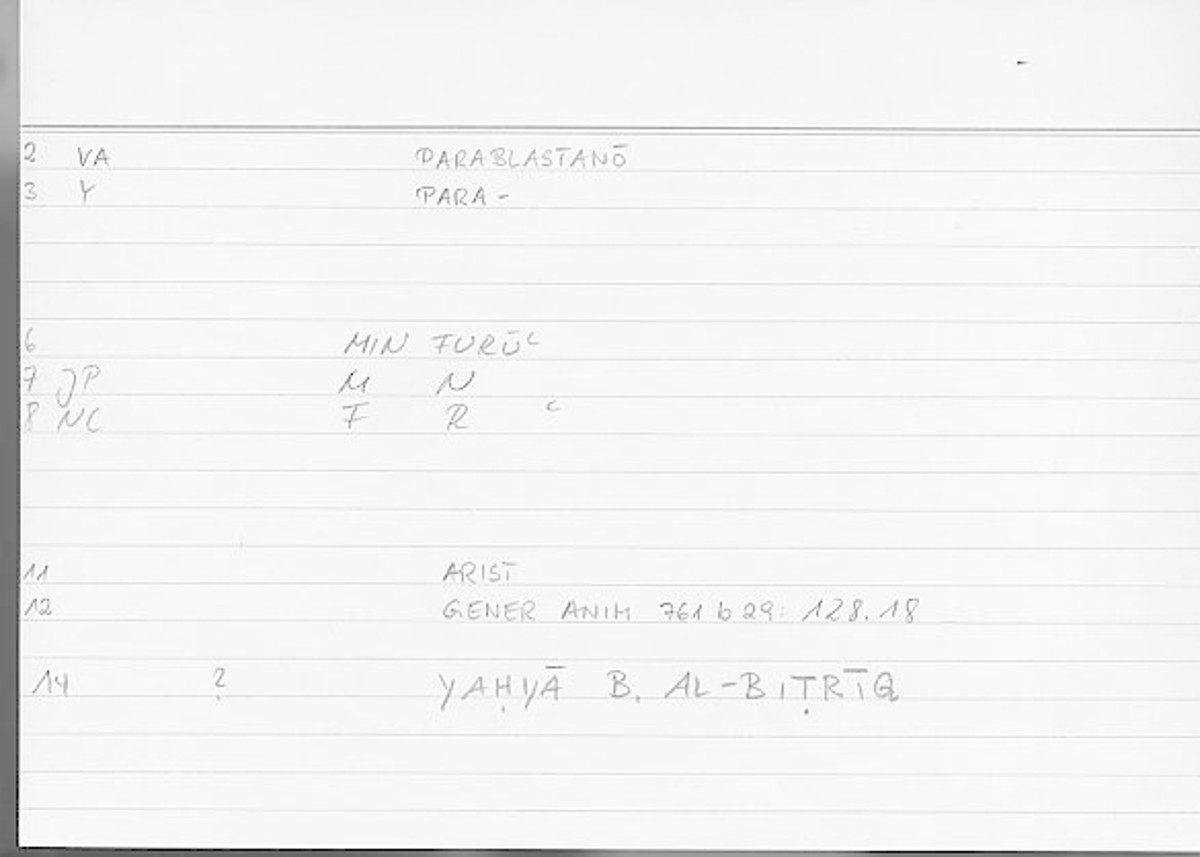 2 VA PARABLASTANŌ
3 Y PARA-
6 MIN FURŪʿ
7 JP M N
8 NC F R ʿ
11 ARIST
12 GENER ANIM 761 b 29: 128.18
14 ? YAḤYĀ B. AL-BIṬRĪQ